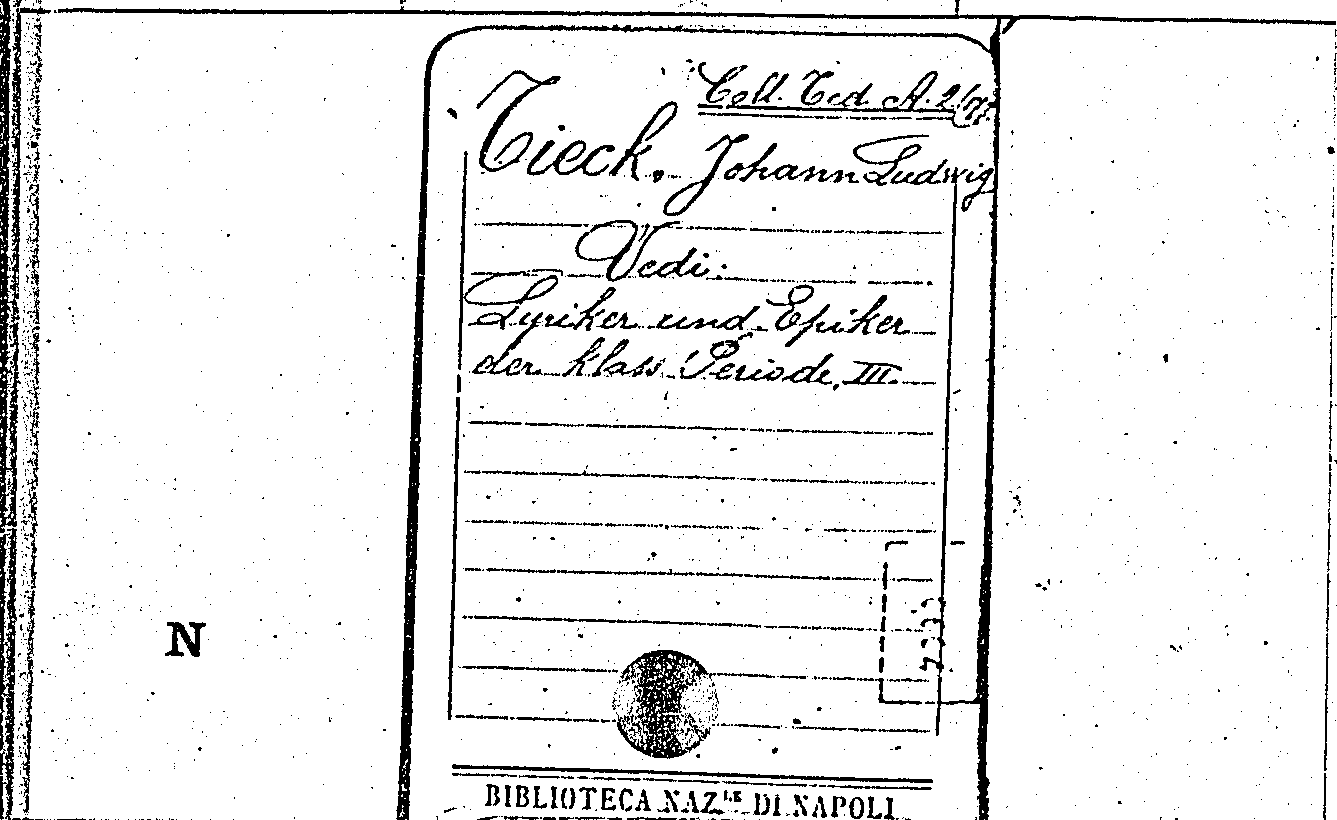 Coll. Ted. A. 2/
Tieck. Johann Ludwig
Vedi:
Lyriker und Epiker
der klass Periode III.
N
BIBLIOTECA NAZ.LE DI NAPOLI